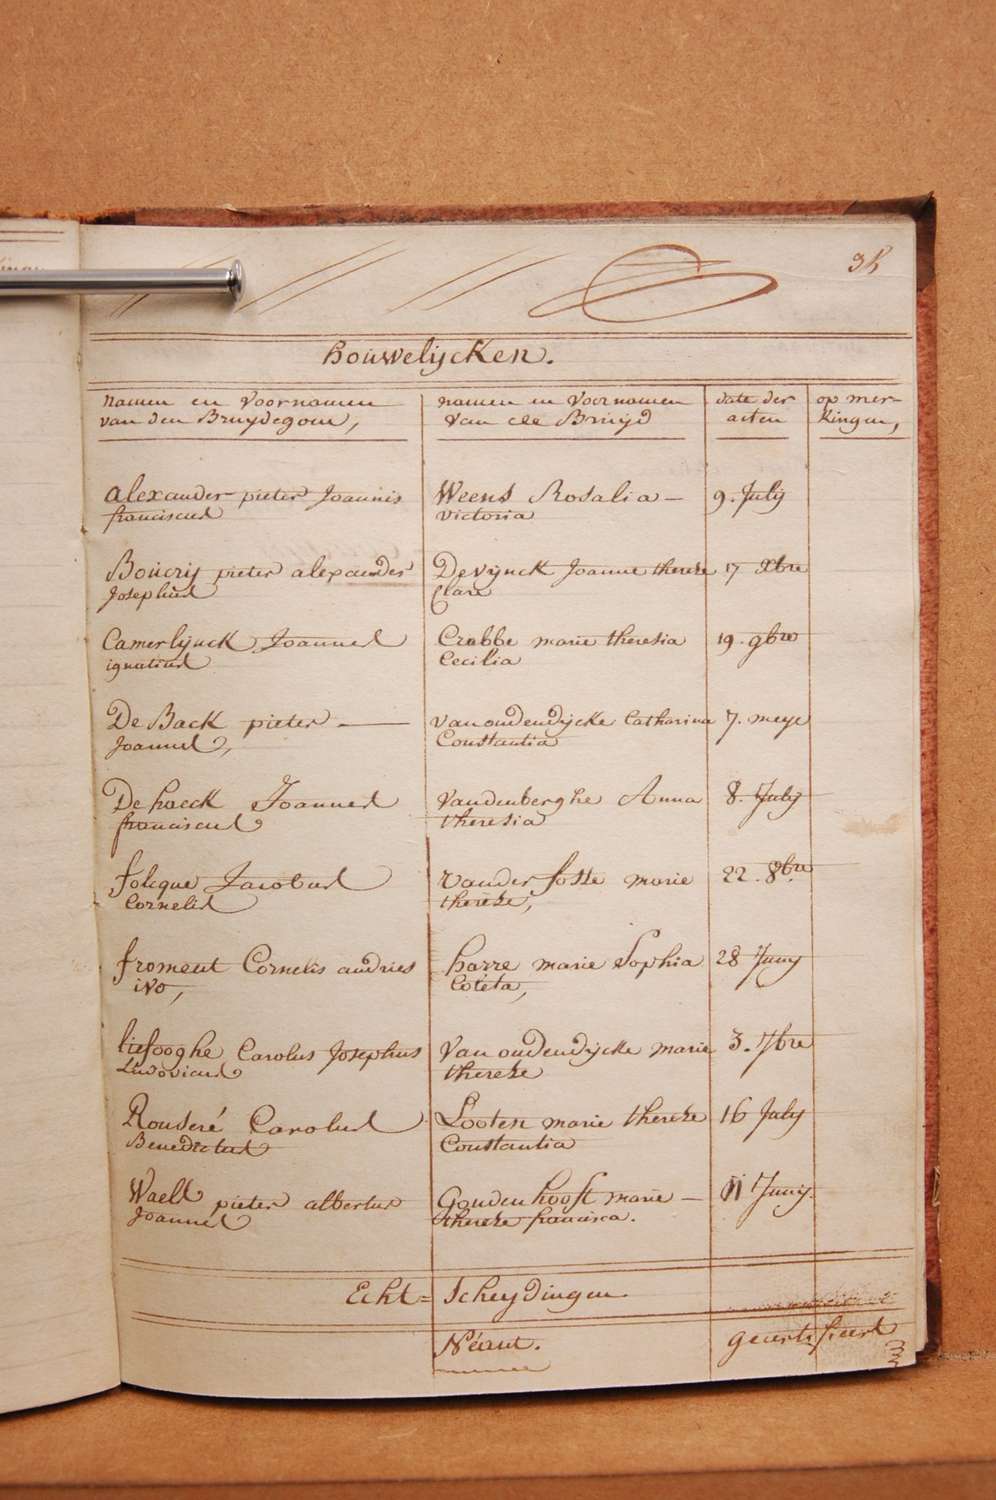 houwelijcken.
namen en voornamen
van den Bruydegom,
namen en voornamen
van de Bruijd
date der
acten
op mer-
kingen,
alexander pieter Joannis
franciscus
Weens Rosalia —
victoria
9. July
Boucrij pieter alexander
Josephus
Devijnck Joanne therese
Clare
17 xbre
Camerlijnck Joannes
ignatius
Crabbe marie theresia
Cecilia
19. 9bre
De Back pieter —
Joannes,
van oudendijcke Catharina
Constantia
7. meye
De haeck Joannes
franciscus
vandenberghe Anna
theresia
8. July
folcque Jacobus
Cornelis
vander fosse marie
therese,
22. 8bre
froment Cornelis andries
ivo,
harre marie Sophia
Coleta,
28 Juny
liefooghe Carolus Josephus
Ludovicus
Van oudendijcke marie
therese
3. 7bre
Rouseré Carolus
Benedictus
Looten marie therese
Constantia
16 July
Waels pieter albertus
Joannes
Goudenhooft marie —
therese francisca.
11 Junij.
Echt= Scheydingen.
Néant.
gecertifieert